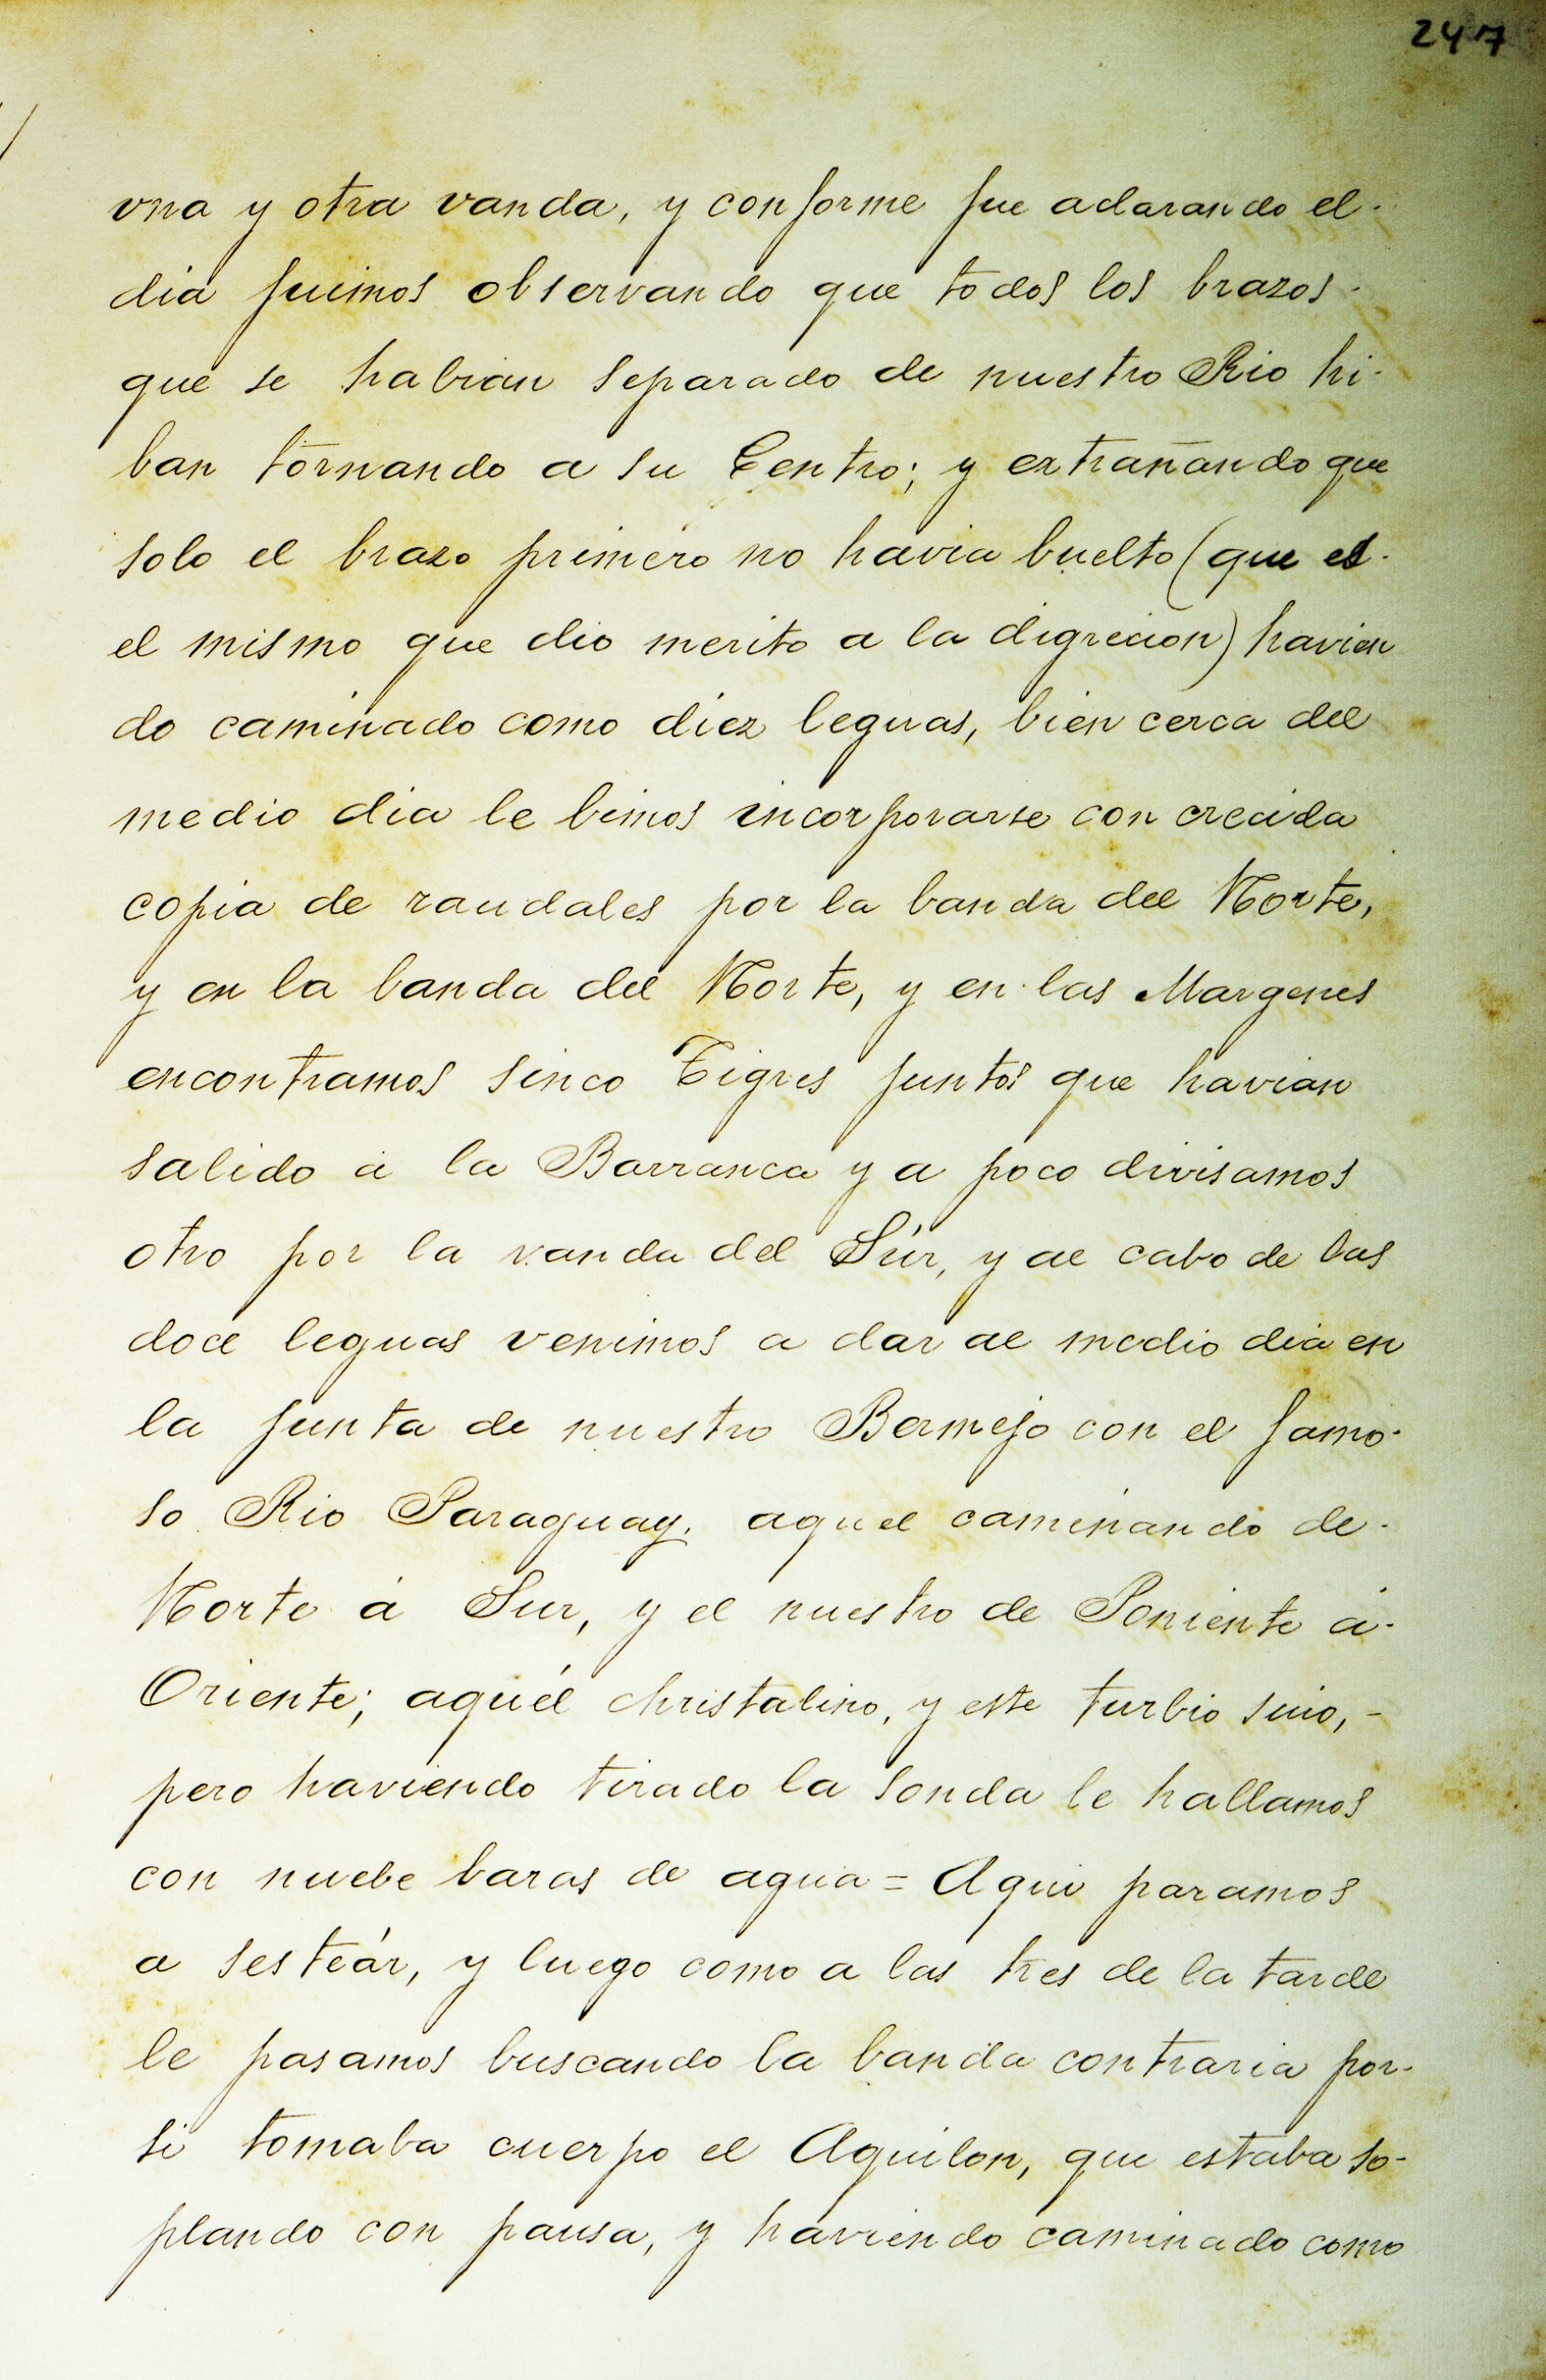 247
vna y otra vanda, y conforme fue aclarando el-
dia fuimos observando que todos los brazos-
que se habian separado de nuestro Rio hi-
ban tornando a su Centro; y extrañando que
solo el brazo primero no havia buelto (que es-
el mismo que dio merito a la digrecion) havien
do caminado como diez leguas, bien cerca del
medio dia le bimos incorporarse con crecida
copia de raudales por la banda del Norte,
y en la banda del Norte, y en las Margenes
encontramos sinco Tigres juntos que havian
salido á la Barranca y a poco divisamos
otro por la vanda del Súr, y al cabo de las
doce leguas venimos a dar al medio dia en
la junta de nuestro Bermejo con el famo-
so Rio Paraguay. aquel caminando de-
Norte á Sur, y el nuestro de Poniente á-
Oriente; aquél christalino, y este turbio sucio, -
pero haviendo tirado la sonda le hallamos
con nuebe baras de agua = Aqui paramos
a sesteár, y luego como a las tres de la tarde
le pasamos buscando la banda contraria por-
si tomaba cuerpo el Aquilon, que estaba so-
plando con pausa, y haviendo caminado como